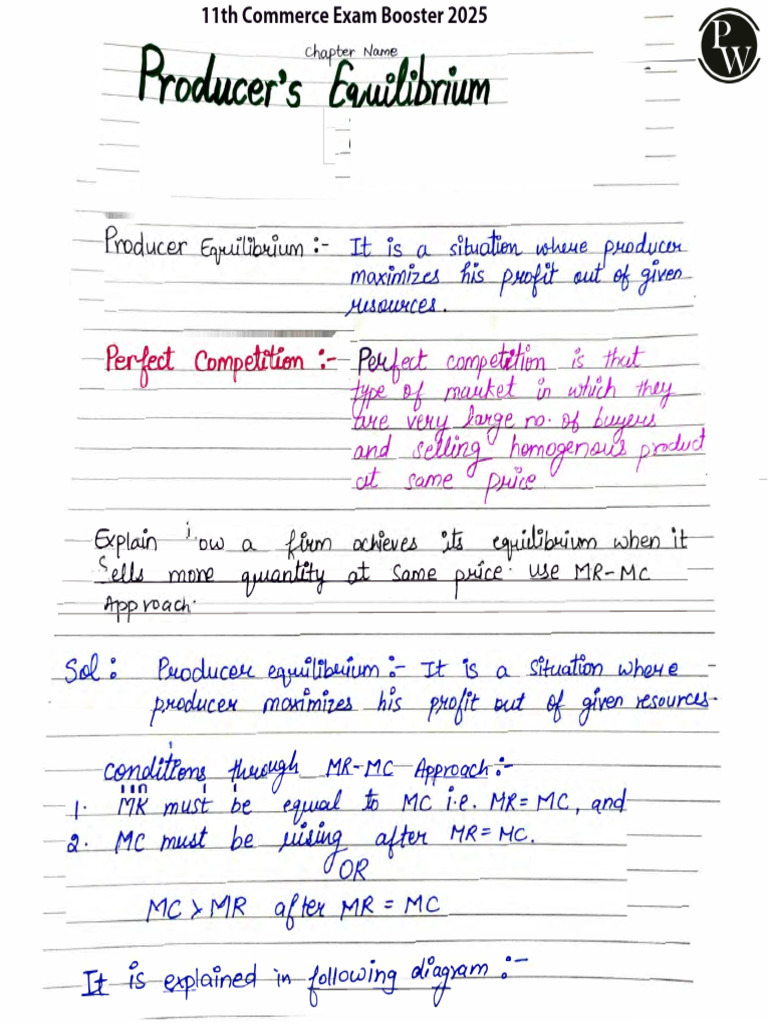 11th Commerce Exam Booster 2025
PW
Chapter Name
Producer's Equilibrium
Producer Equilibrium :- It is a situation where producer
maximizes his profit out of given
resources.
Perfect Competition :- Perfect competition is that
type of market in which they
are very large no. of buyers
and selling homogenous product
at same price
Explain ow a firm achieves its equilibrium when it
Sells more quantity at same price. use MR-MC
Approach.
Sol: Producer equilibrium :- It is a situation where
producer maximizes his profit out of given resources-
conditions through MR-MC Approach :-
1. MR must be equal to MC i.e. MR = MC, and
2. MC must be rising after MR = MC.
OR
MC > MR after MR = MC
It is explained in following diagram :-